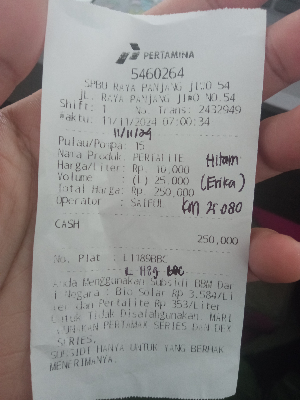 PERTAMINA
5460264
SPBU RAYA PANJANG JIWO 54
JL. RAYA PANJANG JIWO NO.54
Shift: 1 No. Trans: 2432949
Waktu: 11/11/2024 07:00:34
11/11/24
Pulau/Pompa: 15
Nama Produk: PERTALITE
Hitam
Harga/Liter: Rp. 10,000
Volume : (L) 25.000
(Erika)
Total Harga: Rp. 250,000
Operator : SAIFUL
KM 21.080
CASH
250,000
No. Plat : L1189BBC
L 1189 BBC
Anda Menggunakan Subsidi BBM Dar
i Negara : Bio Solar Rp 3.584/Li
ter dan Pertalite Rp 353/Liter
Untuk Tidak Disalahgunakan. MARI
GUNAKAN PERTAMAX SERIES DAN DEX
SERIES.
SUBSIDI HANYA UNTUK YANG BERHAK
MENERIMANYA.